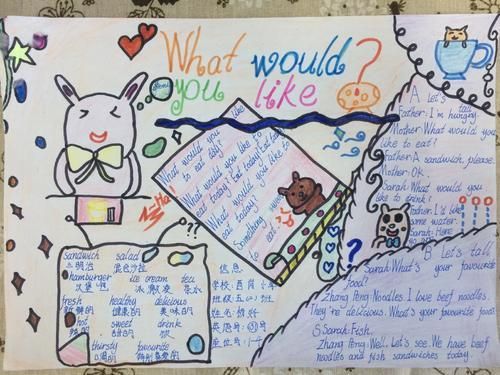 What would
you like ?
What would you like
to eat today?
What would you like to
eat today? Eat today? Eat today?
What would you like to
eat today?
Something
Ha
??
?
sandwich salad
三明治 混合沙拉
hamburger ice cream tea
汉堡包 冰激凌 茶水
fresh healthy delicious
新鲜的 健康的 美味的
hot sweet drink
辣的 甜的 喝
thirsty favourite
口渴的 特别喜爱的
信息
学校:
班级:五(二)班
姓名:
英语号:
座位号:
A Let's talk
Father: I'm hungry.
Mother: What would you
like to eat?
Father: A sandwich, please.
Mother: Ok.
Sarah: What would you
like to drink?
Father: I'd like
some water.
Sarah: Here
B Let's talk
Sarah: What's your favourite
food?
Zhang Peng: Noodles. I love beef noodles.
They're delicious. What's your favourite food?
Sarah: Fish.
Zhang Peng: Well. Let's see. We have beef
noodles and fish sandwiches today.